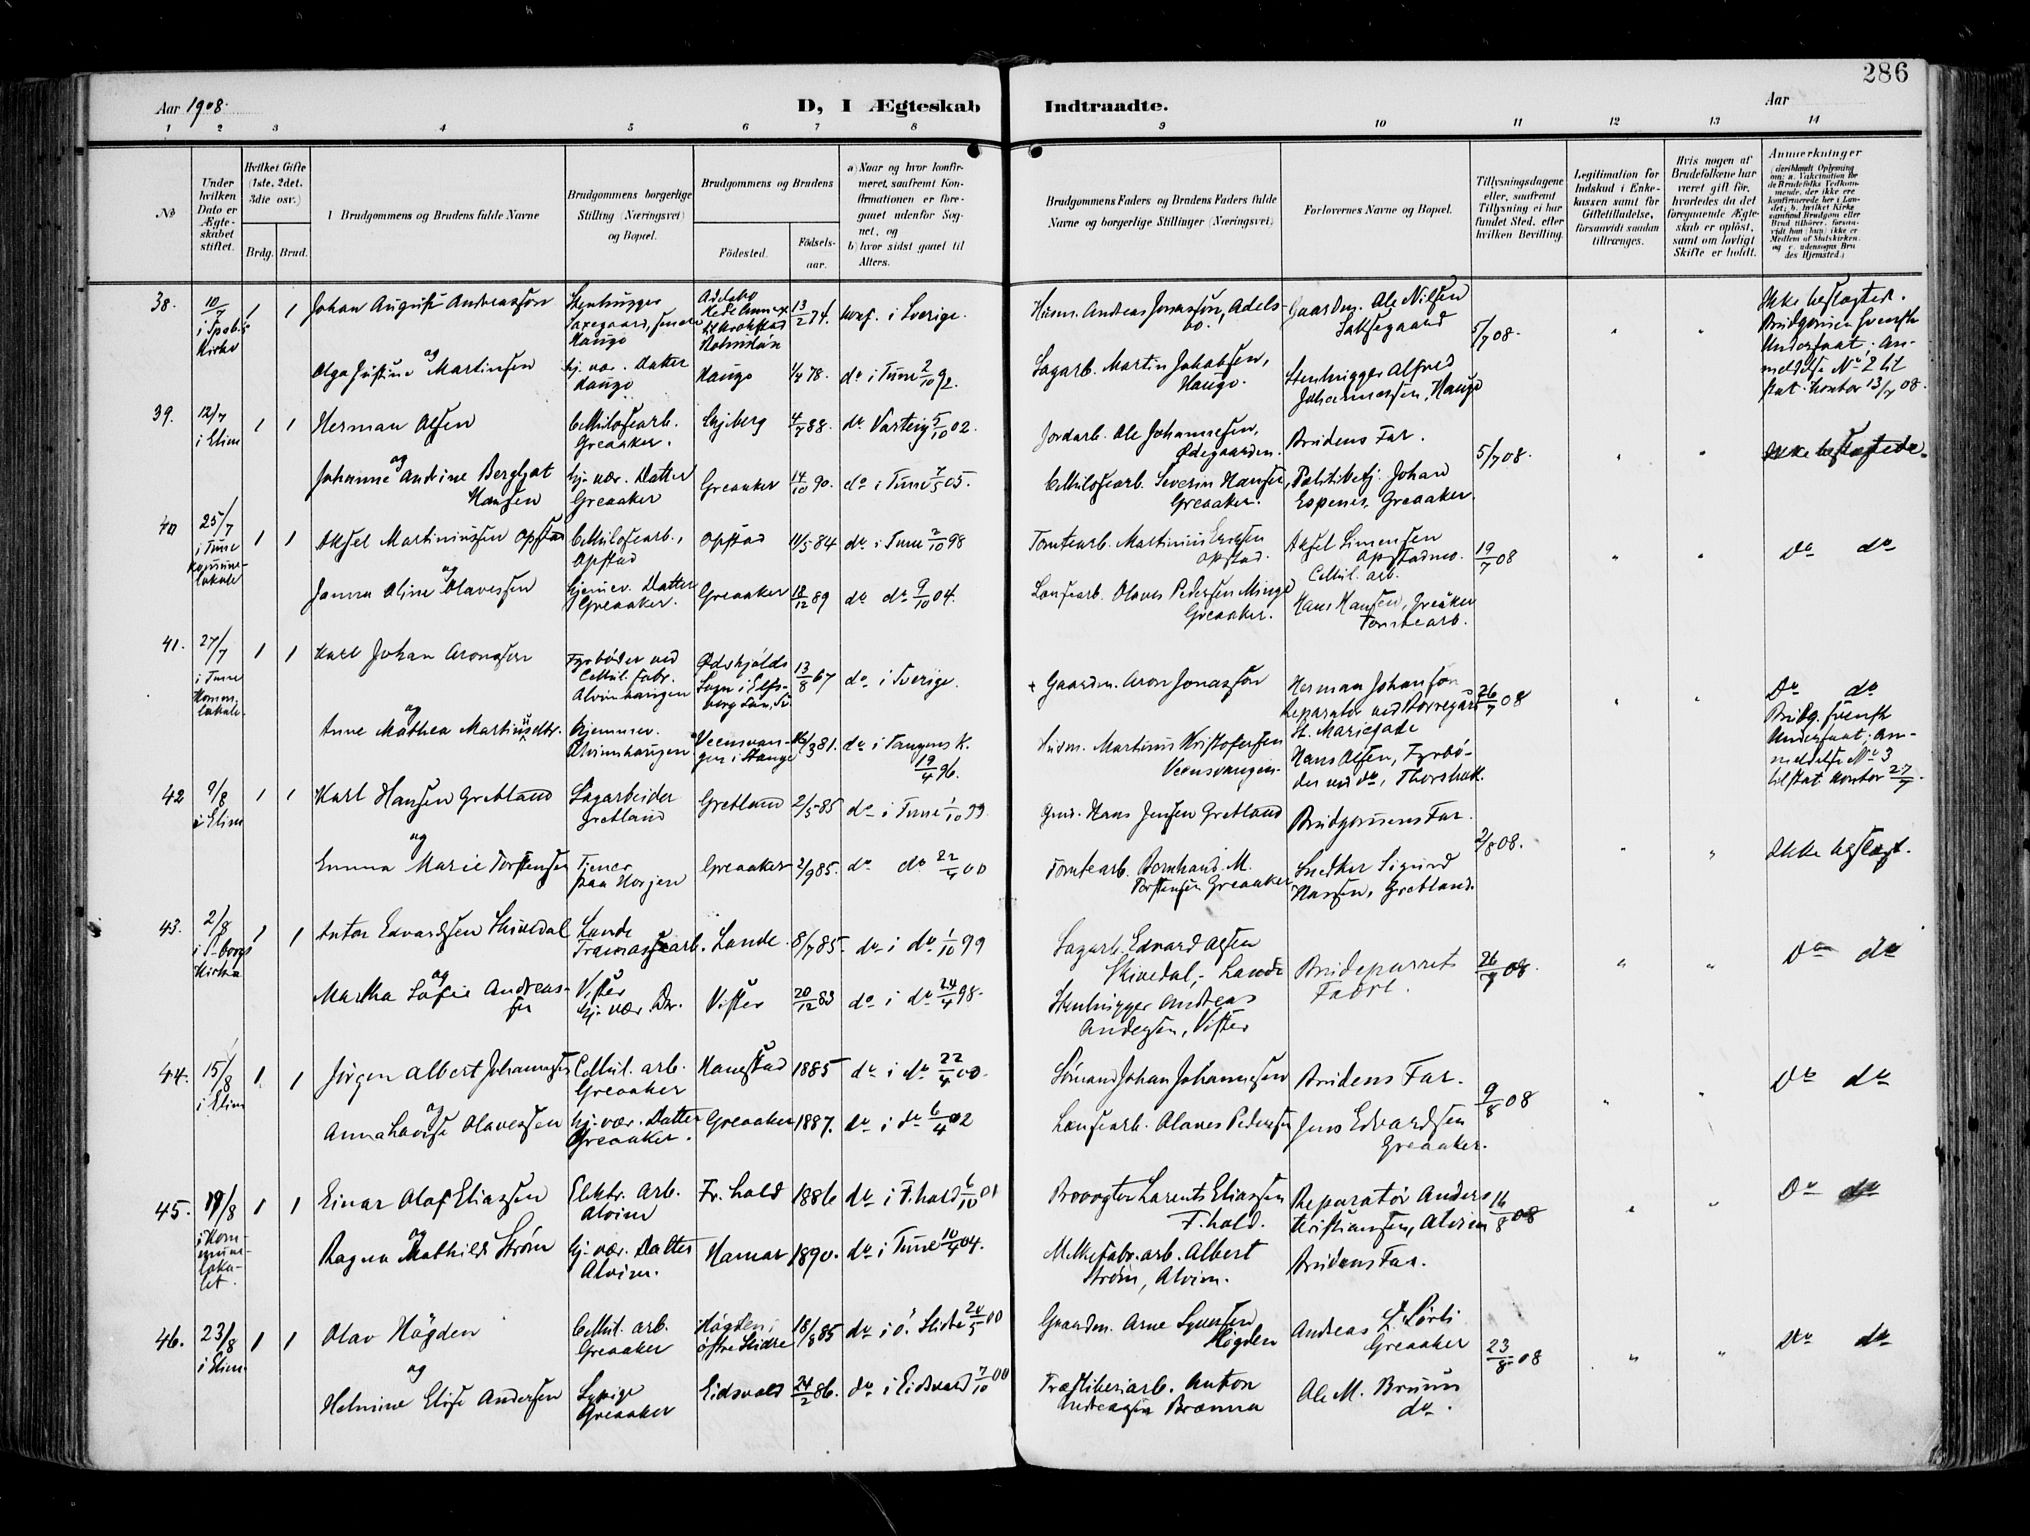 286
Aar 1908.
D, I Ægteskab Indtraadte.
Aar
1 2 3 4 5 6 7 8 9 10 11 12 13 14
No
Under hvilken Dato er Ægteskabet stiftet.
Hvilket Gifte (1ste, 2det, 3die osv.)
Brdg. Brud.
Brudgommens og Brudens fulde Navne
Brudgommens borgerlige Stilling (Næringsvei) og Bopæl.
Brudgommens og Brudens
Fødested.
Fødselsaar.
a) Naar og hvor konfirmeret, saafremt Konfirmationen er foregaaet udenfor Sognet, og
b) hvor sidst gaaet til Alters.
Brudgommens Faders og Brudens Faders fulde Navne og borgerlige Stillinger (Næringsvei)
Forlovernes Navne og Bopæl.
Tillysningsdagene eller, saafremt Tillysning ei har fundet Sted, efter hvilken Bevilling.
Legitimation for Indskud i Enkekassen samt for Giftetilladelse, forsaavidt saadan tiltrænges.
Hvis nogen af Brudefolkene har været gift før, hvorledes da det foregaaende Ægteskab er opløst, samt om lovligt Skifte er holdt.
Anmerkninger
38. 10/7 1 1 Johan August Andreassøn
Stenhugger
13/2 74. konf. i Sverige.
Husm. Andreas Jonassøn, Adelsbo.
Gaardm. Ole Nilsen
5/7 08.
Ikke beslægted.
Brudgommen svensk Undersaat. Anmeldelse No 2 til stat. kontor 13/7 08.
og
Olga Justine Martinsen
hj. vær. Datter Haugo
Haugo 1/4 78. do i Tune 2/10 92.
Sagarb. Martin Jakobsen, Haugo.
Stenhugger Alfred Johannessen, Haugo
39. 12/7 i Elim 1 1 Herman Olsen
Cellulosearb. Greaaker.
4/7 88. do Varteig 5/10 02.
Jordarb. Ole Johannesen, Ødegaarden.
Brudens Far.
5/7 08.
Ikke beslægtede.
og
Johanne Andrine Bergljot Hansen
hj. vær. Datter Greaaker
Greaaker 14/10 90. do i Tune 7/5 05.
Cellulosearb. Severin Hansen, Greaaker.
Politibetj. Johan Espenes, Greaaker
40 25/7 i Tune Kommunelokale 1 1 Aksel Martiniussen Opstad
Cellulosearb., Opstad
Opstad 11/5 84 do i Tune 2/10 98
Tomtearb. Martinius Opstad.
Aksel Simensen Opstadmo. Cellul. arb.
19/7 08
Do do
og
Janna Oline Olavessen
Hjemmev. Datter Greaaker.
Greaaker 18/12 89 do do 9/10 04.
Lonsearb. Olaves Pedersen Minge Greaaker.
Hans Hansen, Greåker Tomtearb.
41. 27/7 i Tune Komm. lokale. 1 1 Karl Johan Aronssen
Fyrbøder ved Cellul. Fabr. Alvimhaugen
Sogn i Elfsborg Län, Sv.
13/8 67 do i Sverige.
Gaardm. Aron Jonassøn
Herman Johanson Reparatør ved Borregård St. Mariegade
26/7 08
Do do
Brudg. svensk Undersaat, Anmeldelse No 3 til stat. kontor 27/7.
og
Anne Mathea Martinusdtr.
Hjemmev. Alvimhaugen
Veensvangen i Stange
81. do i Tangens K. 19/4 96.
Husm. Martinus Kristofersen Veensvangen
Hans Olsen, Fyrbøder ved do, Thorsbak.
42 9/8 i Elim 1 1 Karl Hansen Gretland
Sagarbeider Gretland
Gretland 2/5 85 do i Tune 1/10 99
Hans Jensen Gretland
Brudgommens Far.
2/8 08.
Ikke beslægt.
og
Emma Marie Torstensen
Tjener paa Borjen
Greaaker 2/9 85. do do 22/4 00
Tomtearb. Bernhard M. Torstensen Greaaker
Snedker Sigurd Hansen, Gretland.
43. 2/8 i S-borgs Kirke 1 1 Anton Edvardsen Skivedal
Lande Træmassearb.
Lande 8/7 85. do i do 1/10 99
Sagarb. Edvard Olsen Skivedal, Lande
Brudeparrets Fædre.
26/7 08.
Do do
og
Martha Sofie Andreassen
Vister hj. vær. Dtr.
Vister 20/12 83 do i do 24/4 98.
Stenhugger Andreas Andersen, Vister
44. 15/8 i Elim 1 1 Jørgen Albert Johannesen
Cellul. arb. Greaaker
Hanestad 1885 do i do 22/4 00.
Sømand Johan Johannesen
Brudens Far.
9/8 08
Do do
og
Anna Lovise Olavessen
hj. vær. Datter Greaaker.
Greaaker 1887. do i do 6/4 02
Lonsearb. Olaves Pedersen
Jens Edvardsen Greaaker.
45. 19/8 i Kommunelokalet. 1 1 Einar Olaf Eliassen
Elektr. Arb. Alvim
Fr. hald 1886 do i F.hald 6/10 01
Brovogter Larents Eliassen F.hald.
Reparatør Anders Kristiansen, Alvim
16/8 08
Do do
og
Ragna Mathilde Strøm
hj. vær. Datter Alvim.
Hamar 1890. do i Tune 10/4 04.
Melkefabr. arb. Albert Strøm, Alvim.
Brudens Far.
46. 23/8 i Elim 1 1 Olav Høgden
Cellul. arb. Greaaker
Høgden, østre Slidre
18/8 85 do i ö. Slidre 20/5 00
Gaardm. Arne Syversen Høgden
Andreas L. Sørli Greaaker
23/8 08
Do do
og
Helmine Elise Andersen
Sypige Greaaker
Eidsvold 24/2 86. do i Eidsvold 7/10 00
Træsliberiarb. Anton Andreassen Brænna
Ole M. Bruun do.